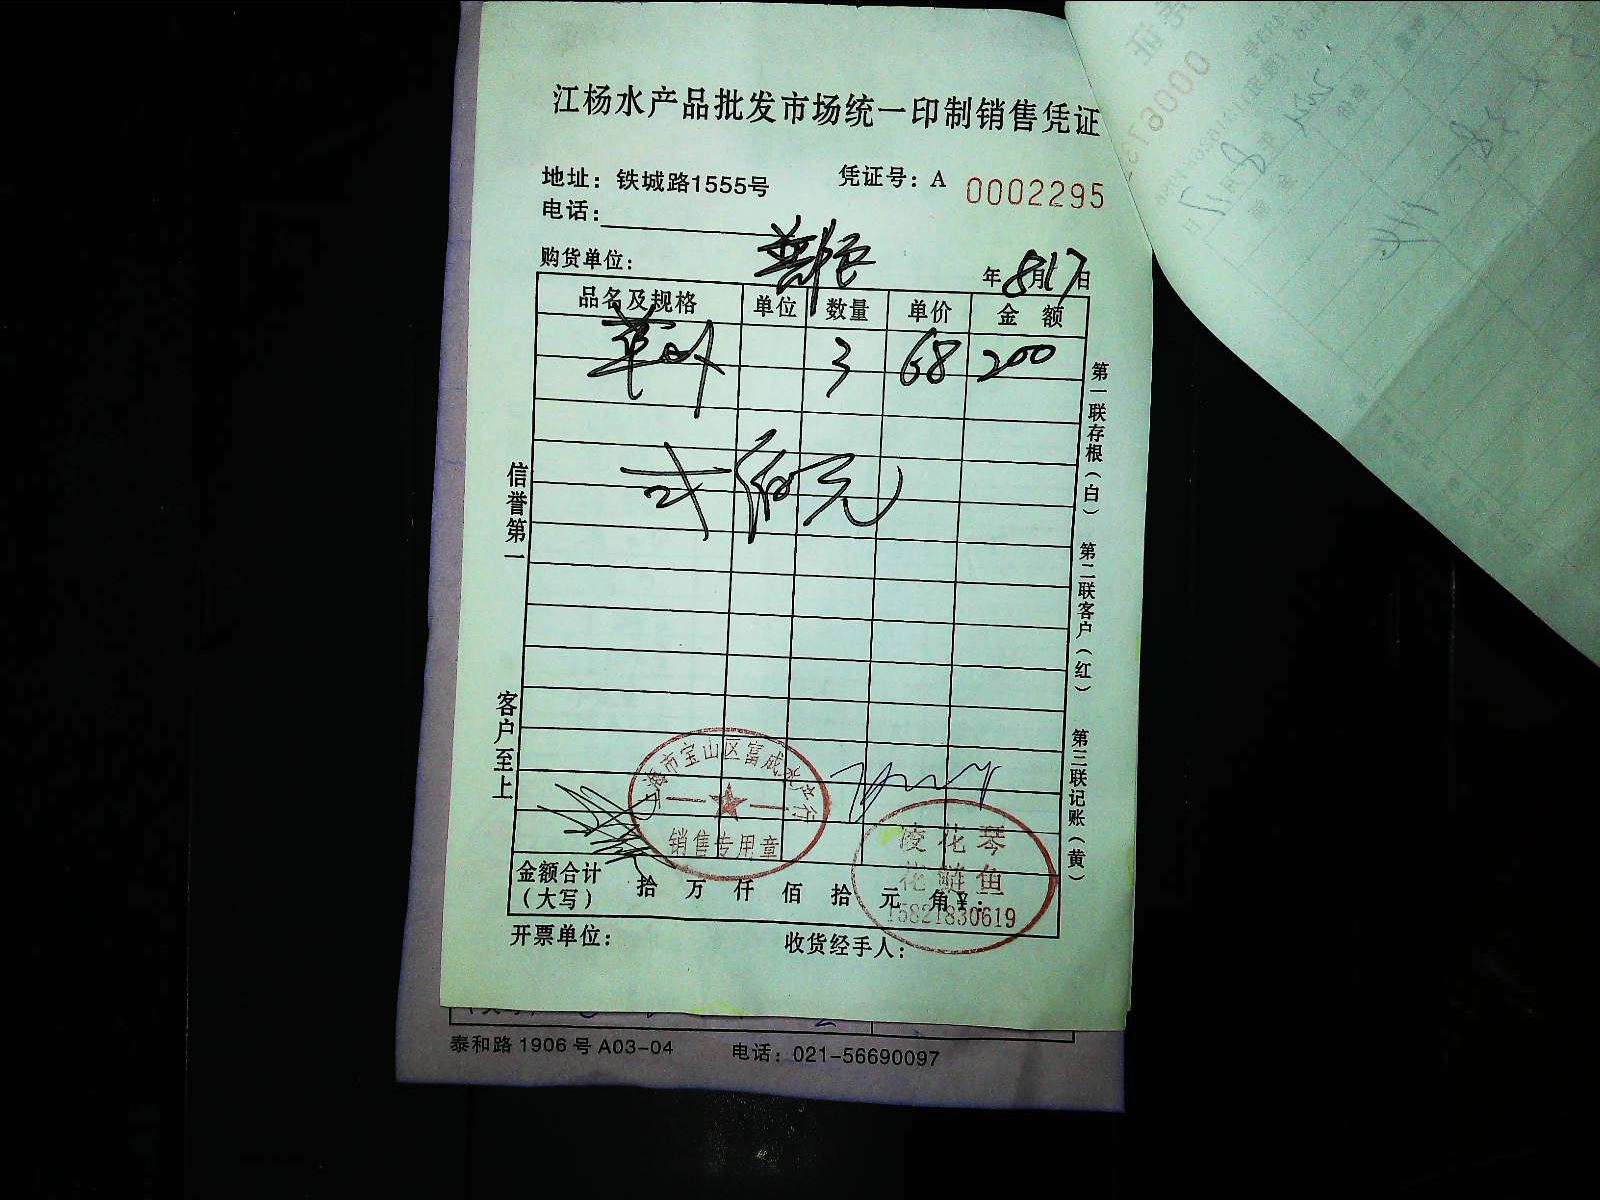 江杨水产品批发市场统一印制销售凭证
地址：铁城路1555号 凭证号：A 0002295
电话：
购货单位： 年8月17日
品名及规格 单位 数量 单价 金额
3 68 200
弍佰元
信誉第一
客户至上
第一联存根（白） 第二联客户（红） 第三联记账（黄）
上海市宝山区富成水产行
销售专用章
凌花琴
花鲢鱼
15821830619
金额合计（大写） 拾 万 仟 佰 拾 元 角 ¥：
开票单位： 收货经手人：
泰和路1906号A03-04 电话：021-56690097